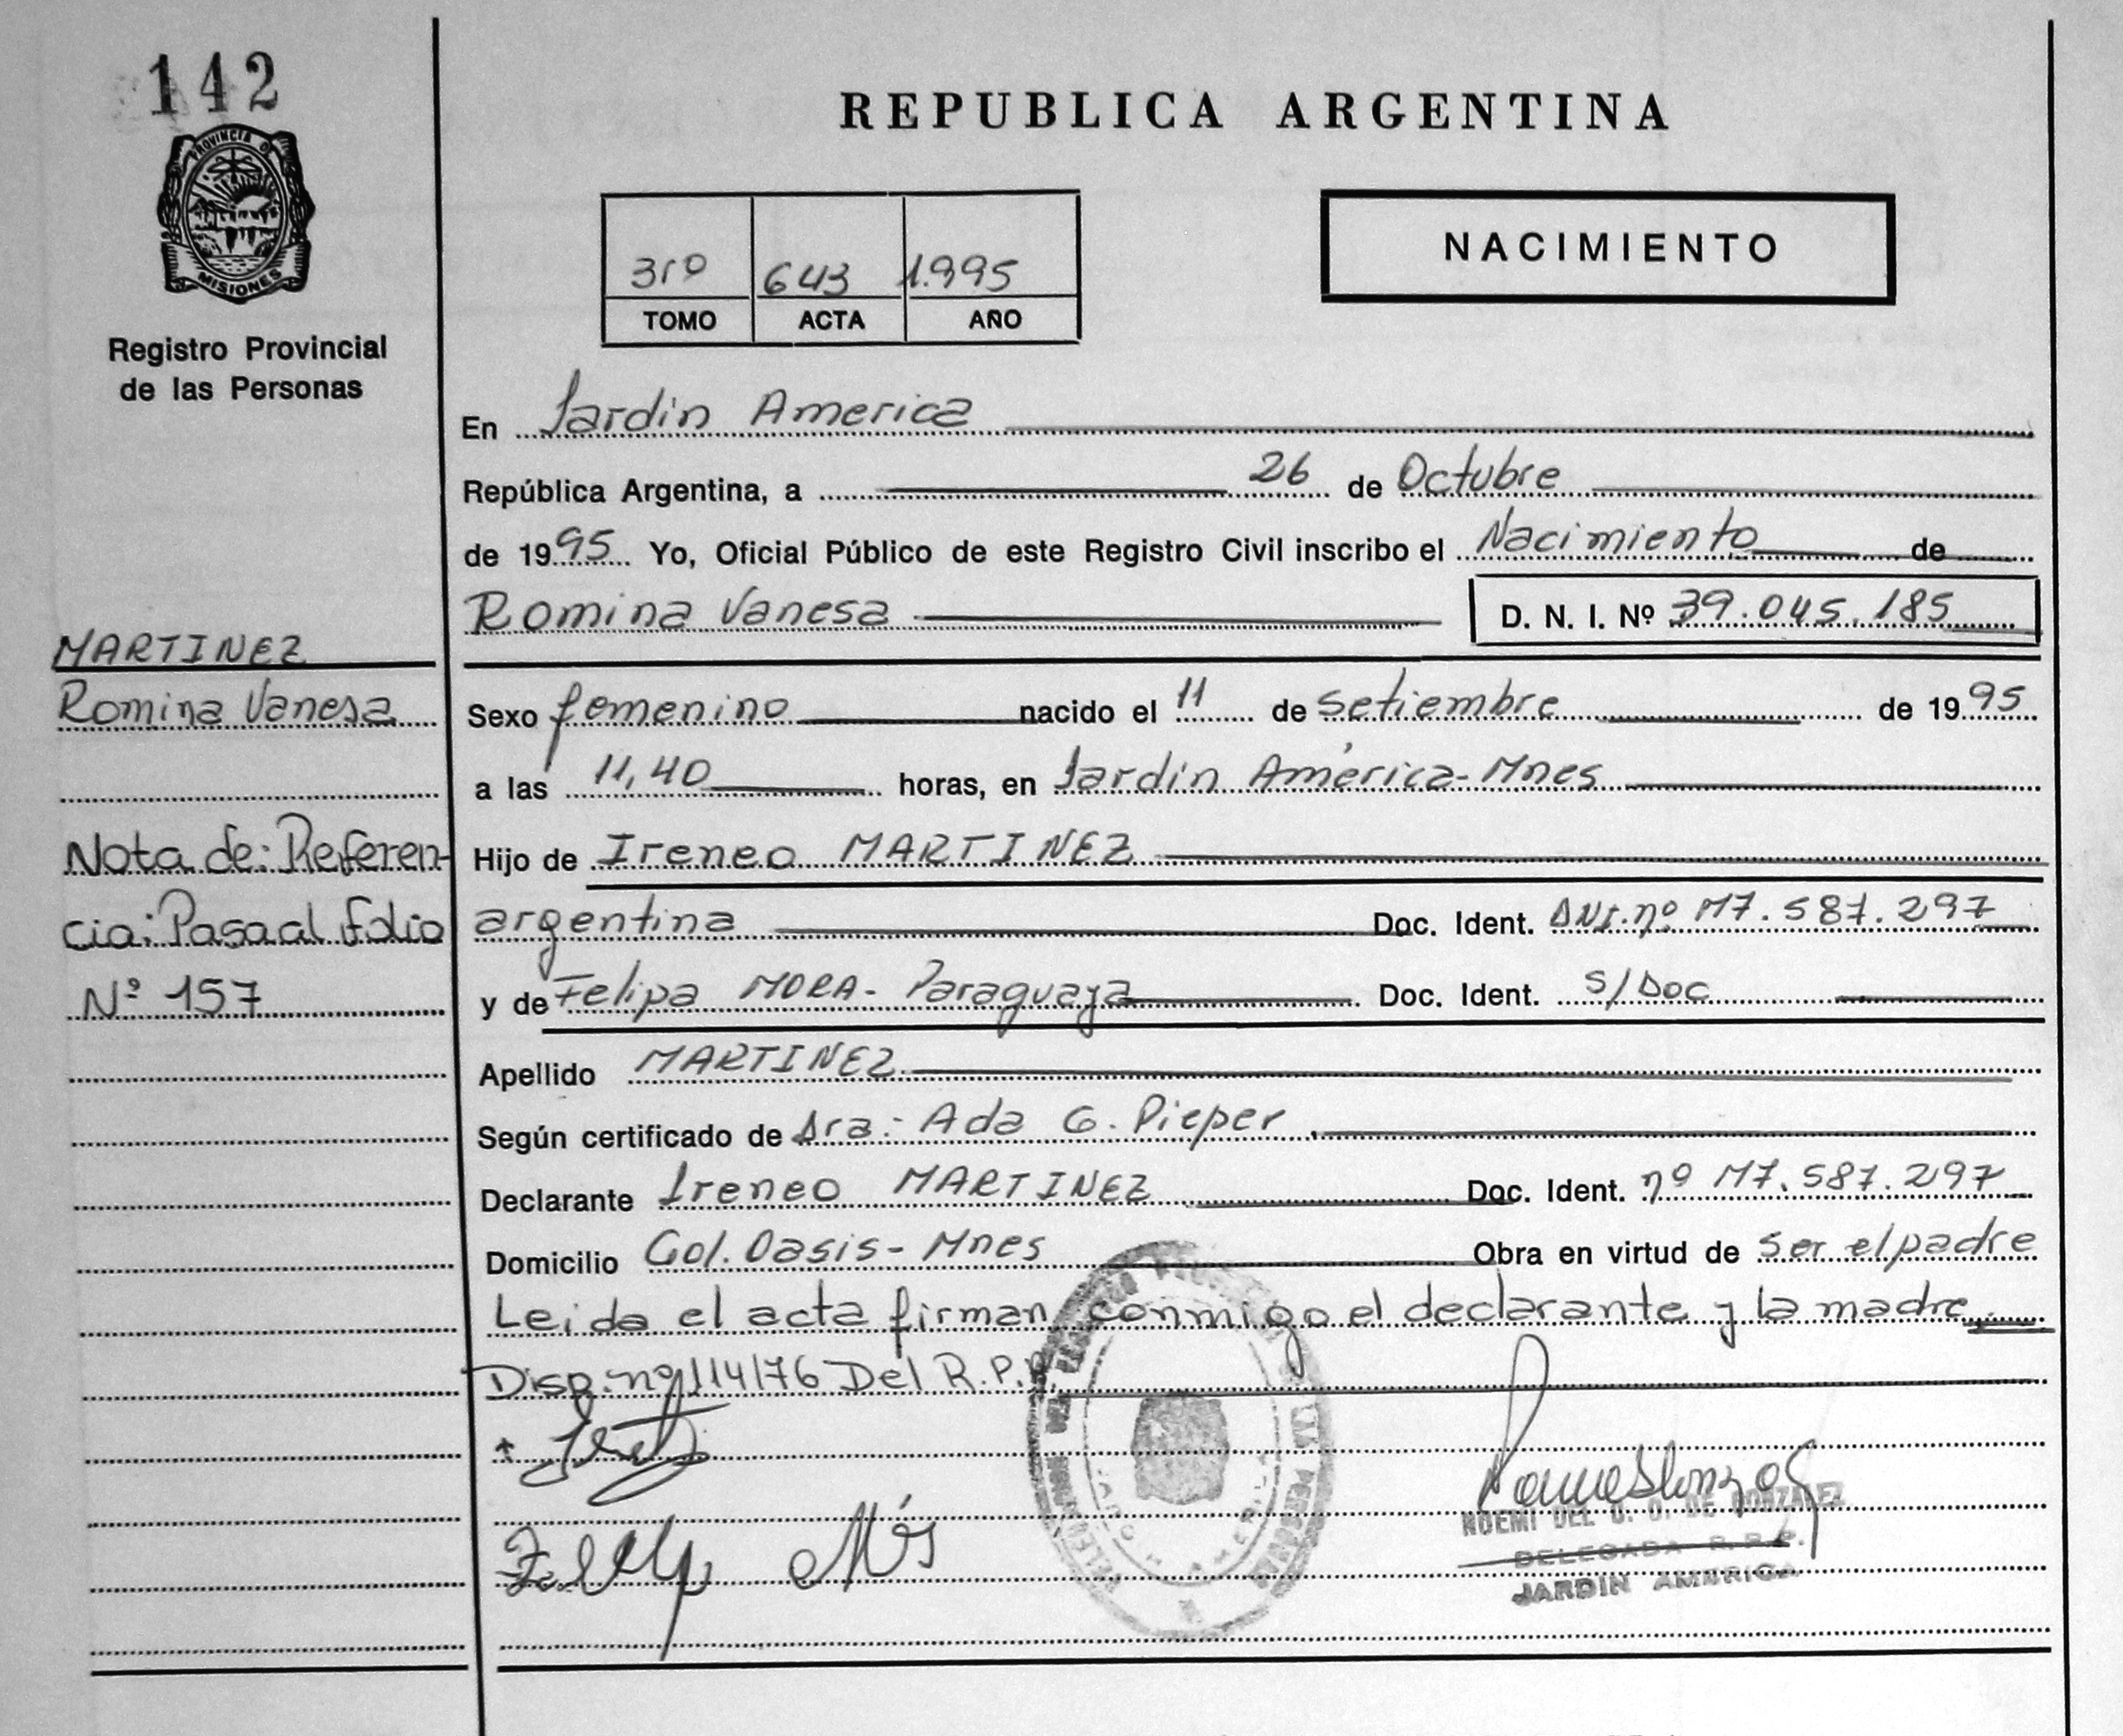 142
PROVINCIA D
MISIONES
Registro Provincial
de las Personas
REPUBLICA ARGENTINA
3ro 643 1.995
TOMO ACTA AÑO
NACIMIENTO
En Jardin America
República Argentina, a 26 de Octubre
de 1995 Yo, Oficial Público de este Registro Civil inscribo el Nacimiento de
Romina Vanesa D. N. I. Nº 39.045.185
MARTINEZ
Romina Vanesa
Sexo femenino nacido el 11 de Setiembre de 1995
a las 11,40 horas, en Jardin América-Mnes
Nota de: Referen-
cia: Pasa al folio
Nº 157
Hijo de Ireneo MARTINEZ
argentina Doc. Ident. DNI.nº M7.587.297
y de Felipa MORA- Paraguaya Doc. Ident. S/Doc
Apellido MARTINEZ
Según certificado de Dra: Ada G. Pieper
Declarante Ireneo MARTINEZ Doc. Ident. nº M7.587.297
Domicilio Col. Oasis- Mnes Obra en virtud de Ser el padre
Leida el acta firman conmigo el declarante y la madre
Disp. nº 114/76 Del R.P.P.
NOEMI DEL DE GONZALEZ
DELEGADA R.P.P.
JARDIN AMERICA